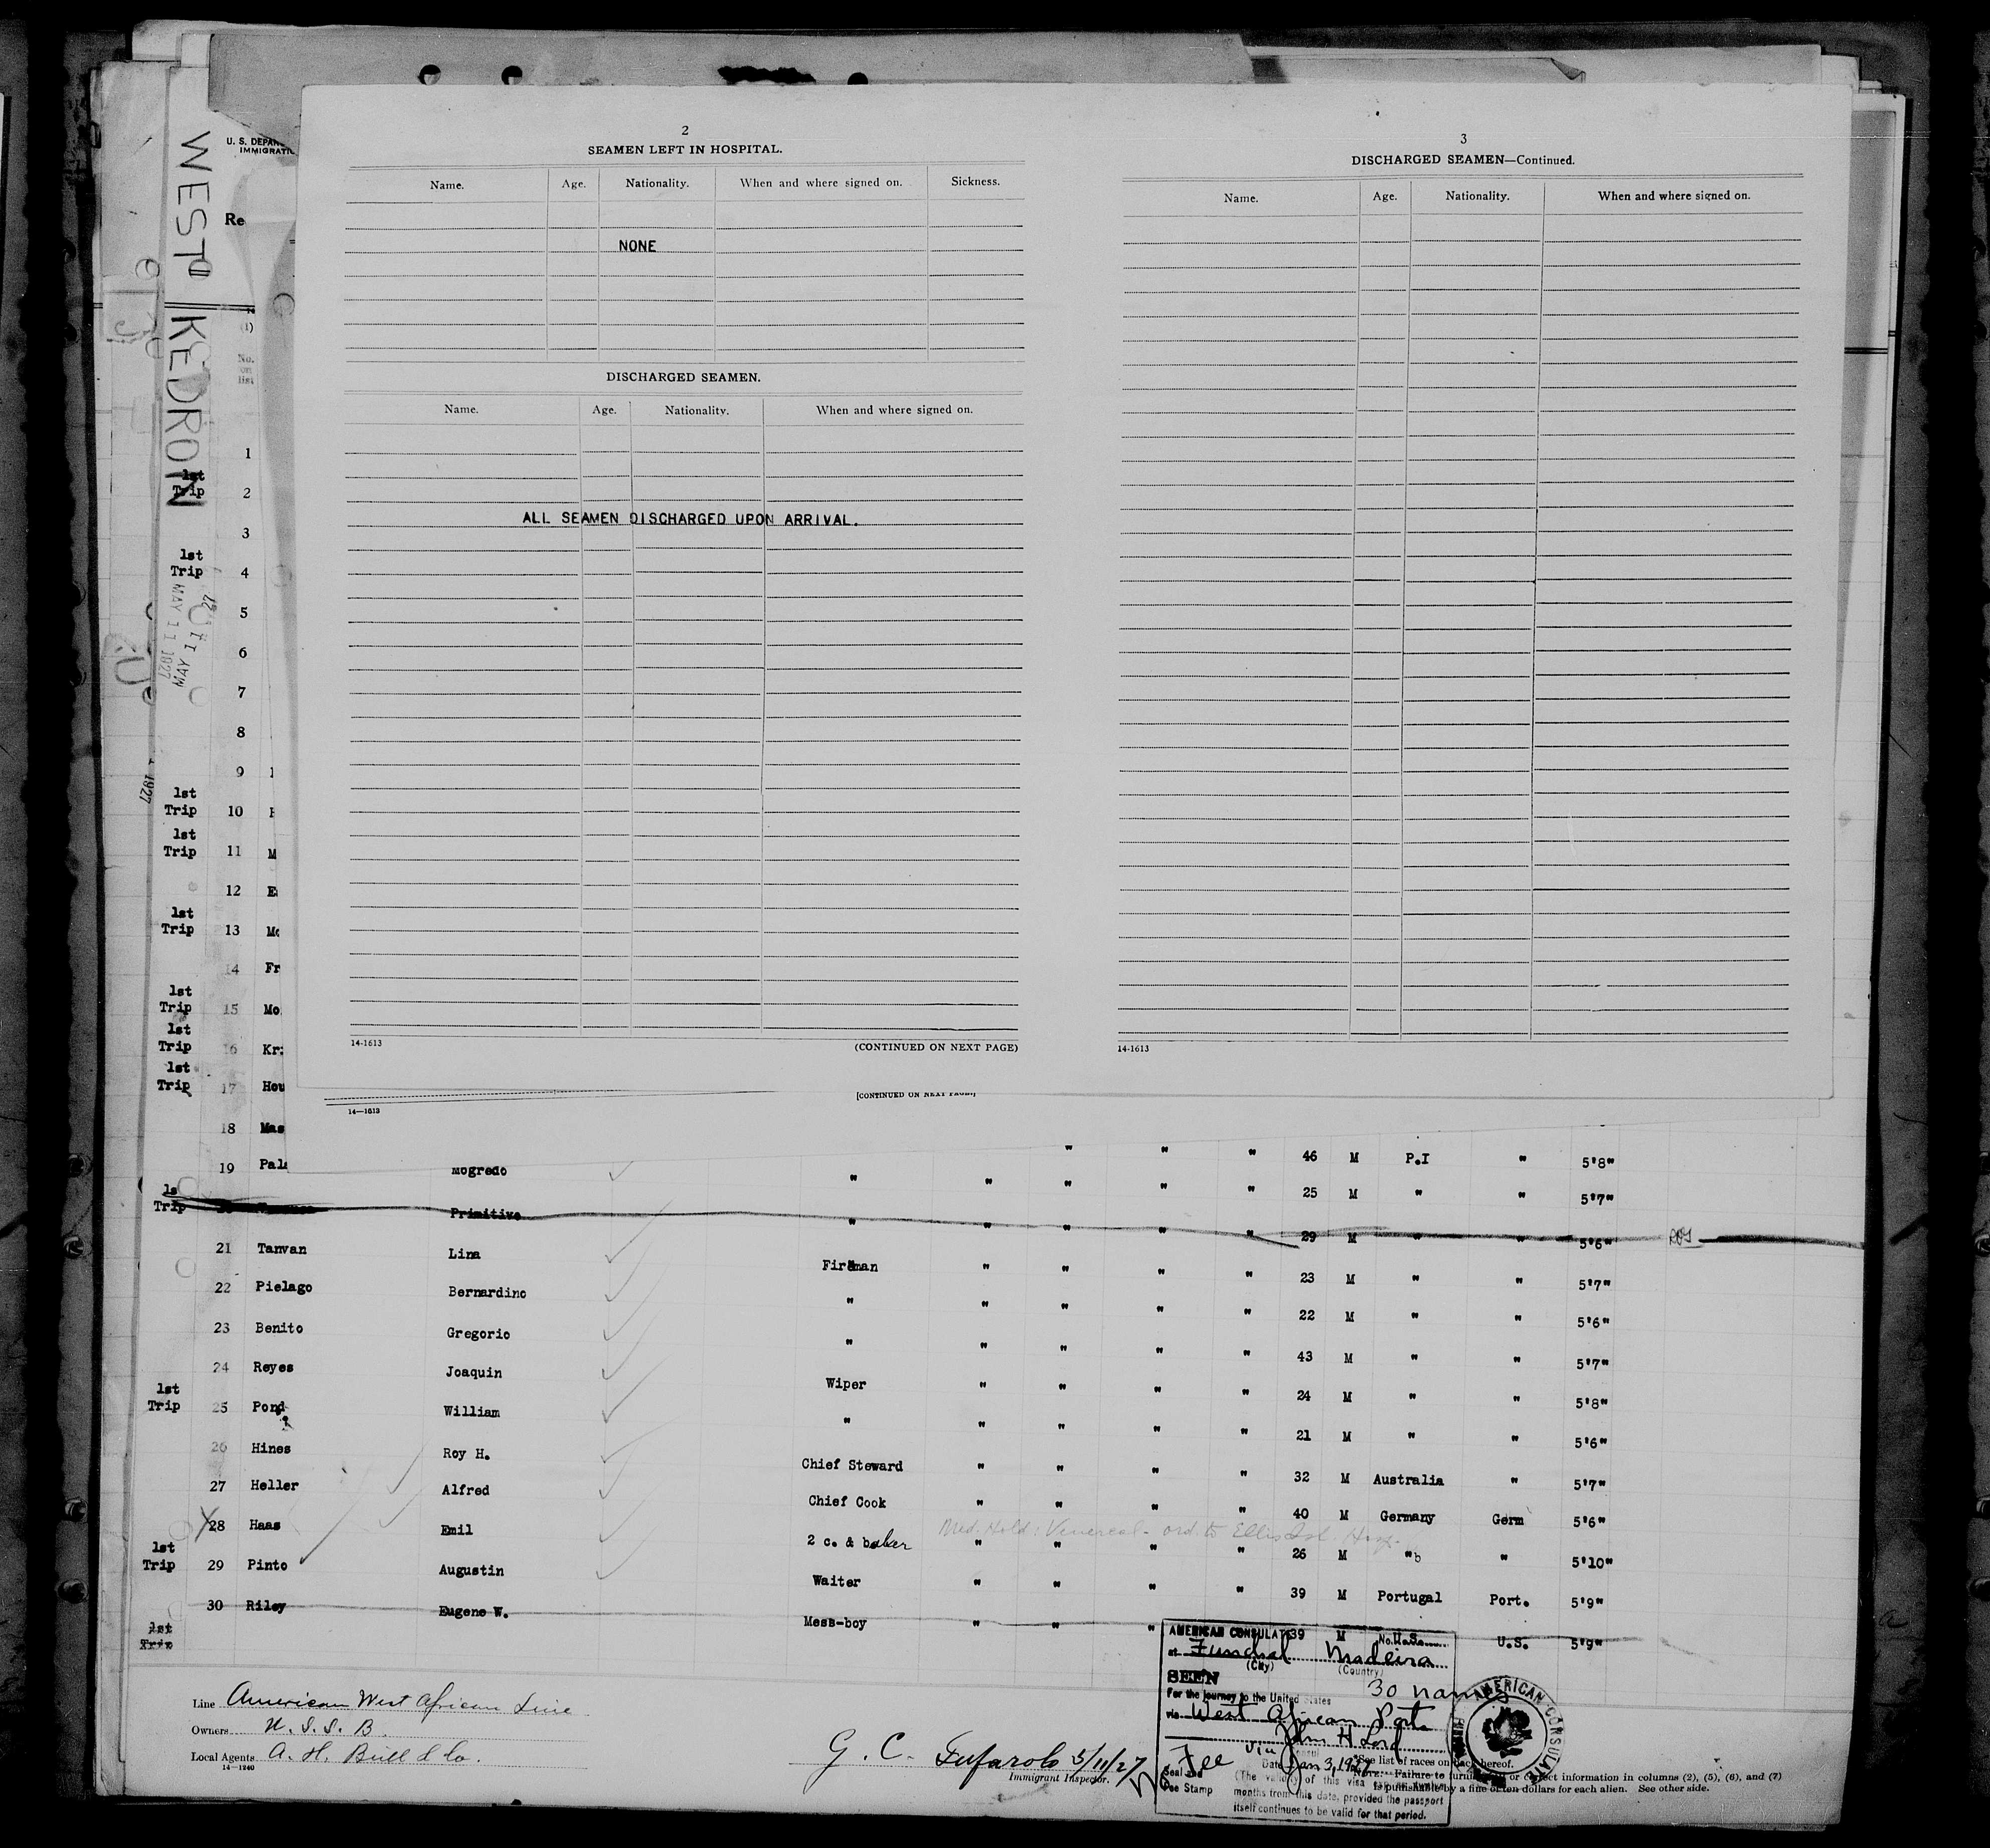 WEST KEDRON
U. S. DEPAR
IMMIGRATIO
Re
(1)
No.
on
list
2
SEAMEN LEFT IN HOSPITAL.
Name. Age. Nationality. When and where signed on. Sickness.
NONE
DISCHARGED SEAMEN.
Name. Age. Nationality. When and where signed on.
ALL SEAMEN DISCHARGED UPON ARRIVAL.
14-1613 (CONTINUED ON NEXT PAGE)
3
DISCHARGED SEAMEN—Continued.
Name. Age. Nationality. When and where signed on.
14-1613
14—1613 [CONTINUED ON NEXT PAGE.]
MAY 11 1927
1927
1
1st
Trip 2
3
1st
Trip 4
5
6
7
8
9
1st
Trip 10
1st
Trip 11 M
12 E
1st
Trip 13 Mc
14 Fr
1st
Trip 15 Mo
1st
Trip 16 Kr
1st
Trip 17 Hou
18 Mas " " " 46 M P.I " 5'8"
19 Pal Mogredo " " " " " 25 M " " 5'7"
1s
Trip Primitivo " " " " " 29 M " " 5'6"
21 Tanvan Lina Fireman " " " " 23 M " " 5'7"
22 Pielago Bernardino " " " " " 22 M " " 5'6"
23 Benito Gregorio " " " " " 43 M " " 5'7"
24 Reyes Joaquin Wiper " " " " 24 M " " 5'8"
1st
Trip 25 Pond William " " " " " 21 M " " 5'6"
26 Hines Roy H. Chief Steward " " " " 32 M Australia " 5'7"
27 Heller Alfred Chief Cook " " " " 40 M Germany Germ 5'6"
Med. Hold: Venereal - ord. to Ellis Isl. Hosp.
28 Haas Emil 2 c. & baker " " " " 26 M " " 5'10"
1st
Trip 29 Pinto Augustin Waiter " " " " 39 M Portugal Port. 5'9"
30 Riley Eugene W. Mess-boy " " " 39 M U.S. U.S. 5'9"
1st
Trip
Line American West African Line
Owners U. S. S. B.
Local Agents A. H. Bull & Co.
14—1240
G. C. 5/11/27
Immigrant Inspector.
AMERICAN CONSULATE No.
at Funchal Madeira
(City) (Country)
SEEN 30 names
For the journey to the United States
via West African Ports
John H Lord
Fee
Date Jan 3, 1927
Seal and
Fee Stamp
(The validity of this visa
months from this date, provided the passport
itself continues to be valid for that period.
AMERICAN CONSULATE
See list of races on back hereof.
NOTE.—Failure to furnish or correct information in columns (2), (5), (6), and (7)
is punishable by a fine of ten dollars for each alien. See other side.